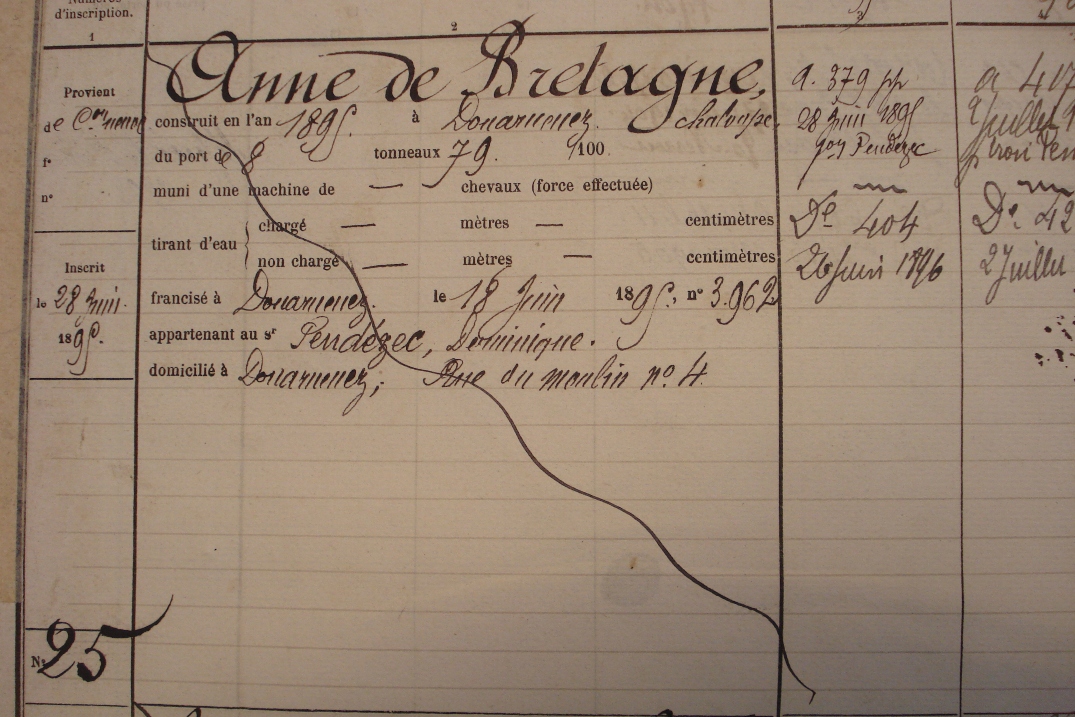 Numéros
d'inscription.
1
2
3
Anne de Bretagne,
Provient
de
construit en l'an 1895. à Douarnenez. chaloupe.
f°
du port de 8 tonneaux 79. /100
n°
muni d'une machine de — chevaux (force effectuée)
tirant d'eau { chargé — mètres — centimètres
non chargé — mètres — centimètres
Inscrit
le 28 Juin.
1895.
francisé à Douarnenez. le 18 Juin 1895, n° 3.962
appartenant au sr Pendézec, Dominique.
domicilié à Douarnenez, Rue du moulin n° 4.
N° 25
a. 379 pp
28 Juin 1895
Pendézec
De 404
26 Juin 1896
a 417
Juillet
De 42
2 Juillet